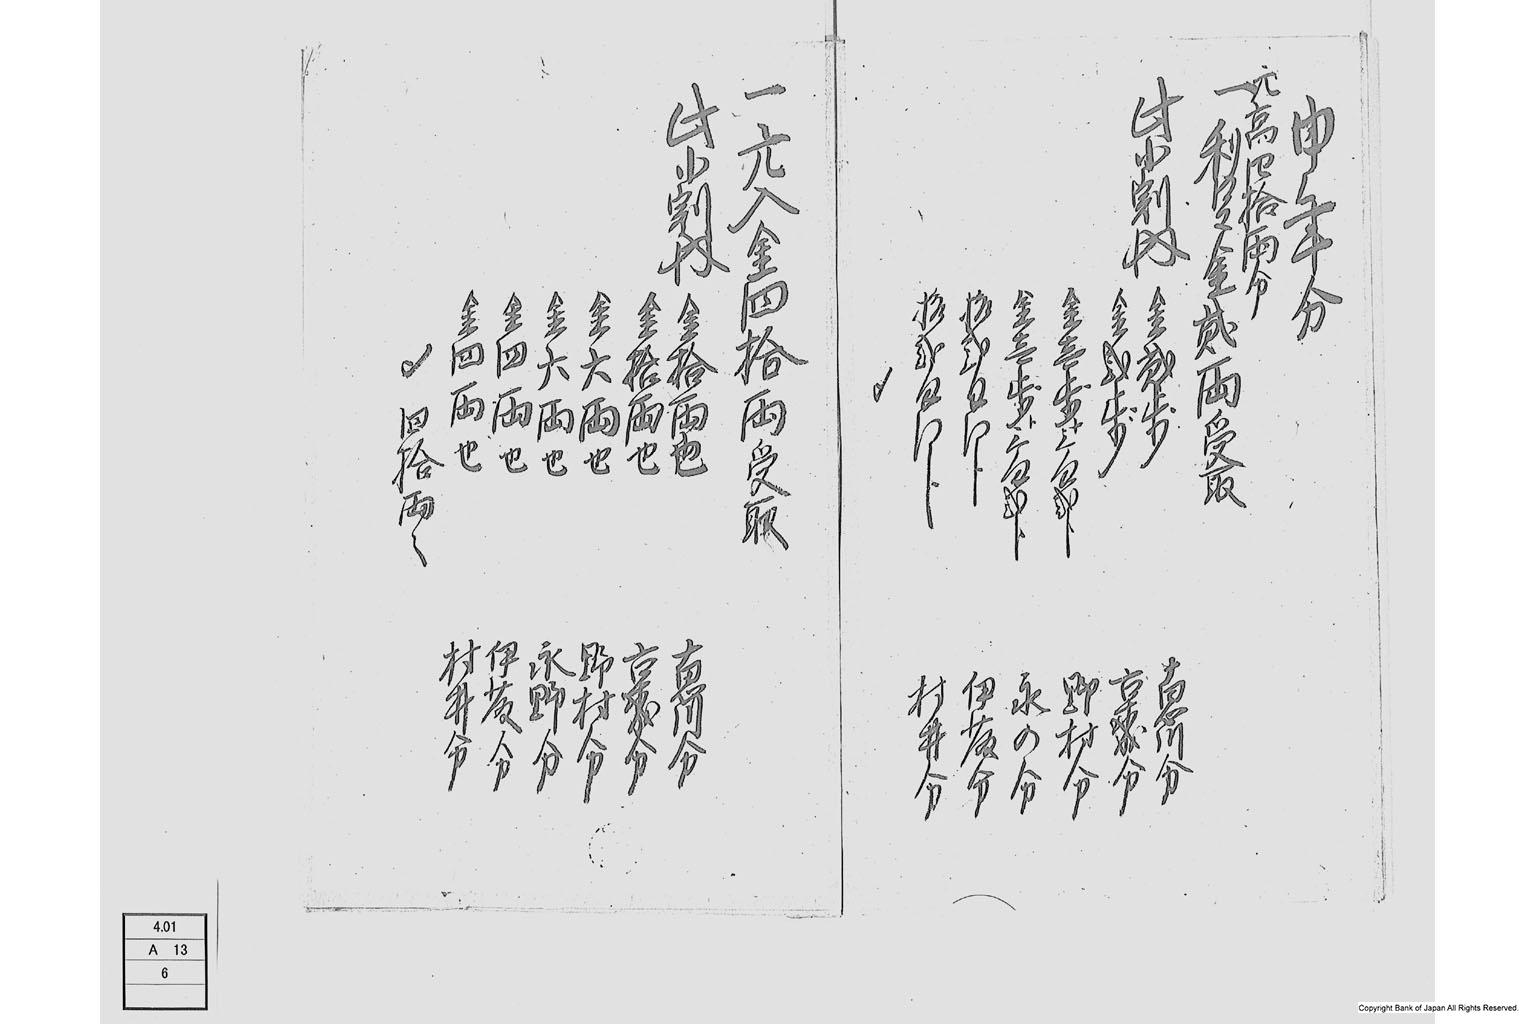 申年分
元高四拾両分
一利足金貳両受取
此小割内
金貳歩
南川分
金貳歩
吉蔵分
金壱歩
野村分
金壱歩
永の分
拾貳匁
伊藤分
拾貳匁
村井分
一元入金四拾両受取
此小割内
金拾両也
南川分
金拾両也
吉蔵分
金六両也
野村分
金六両也
永野分
金四両也
伊藤分
金四両也
村井分
〆四拾両
4.01
A 13
6
Copyright Bank of Japan All Rights Reserved.